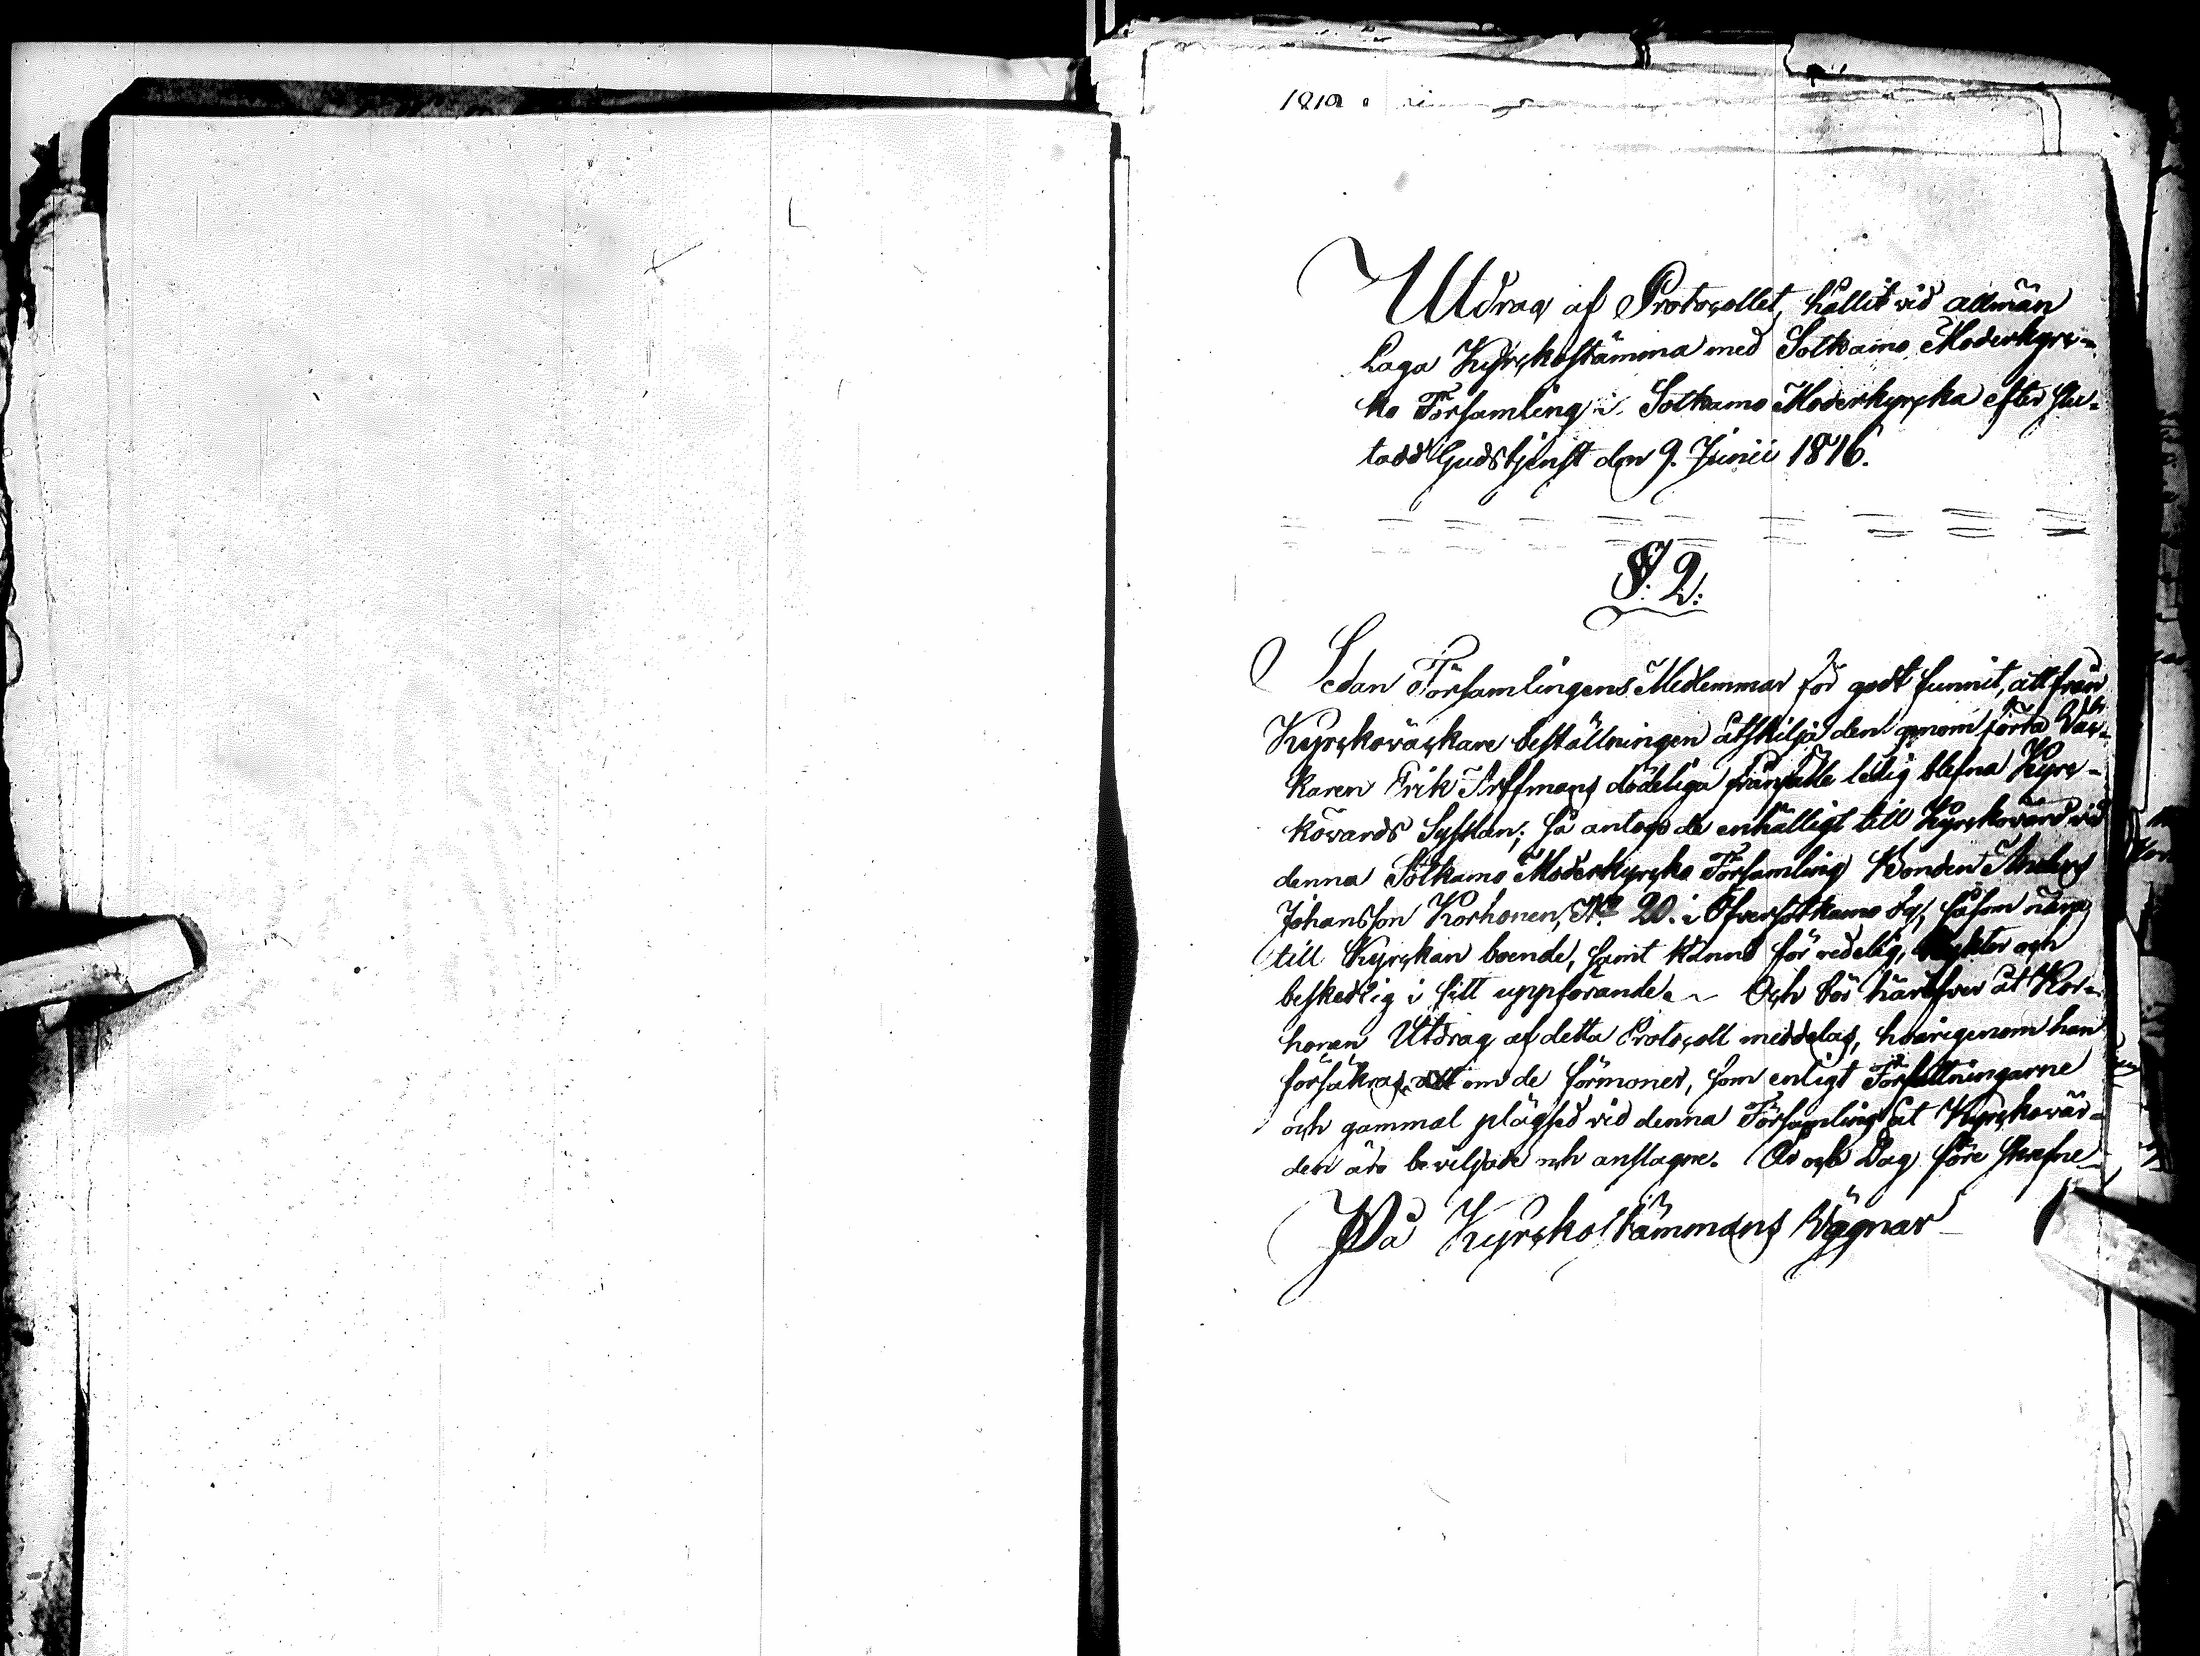 Utdrag af Protocollet, hållit vid allmän
Laga Kyrckostämma med Sotkamo Moderkyrc-
ko Församling i Sotkamo Moderkyrcka efter slu-
tadd Gudstjenst den 9. Junii 1816.
§. 2.
Sedan Församlingens Medlemmar för godt funnit, att från
Kyrckoväckare beställningen åtskilja den genom förra Väc-
karen Erik Arffmans dödeliga frånfälle ledig blefna Kyrc-
kovärds Sysslan; så antogs de enhälligt till Kyrckovärd vid
denna Sotkamo Moderkyrcko Församling Bonden Anders
Johansson Korhonen, No 20. i Öfversotkamo by, såsom nära
till Kyrckan boende, samt känd för redelig, nykter och
beskedlig i sitt uppförande. Och bör häröfver åt Kor-
honen Utdrag af detta Protocoll meddelas, hvarigenom han
försäkras om de förmoner, som enligt Författningarne
och gammal plägsed vid denna Församling åt Kyrckovär-
den äro beviljade och anslagne. År och Dag före skrefne
På Kyrckostämmans Vägnar